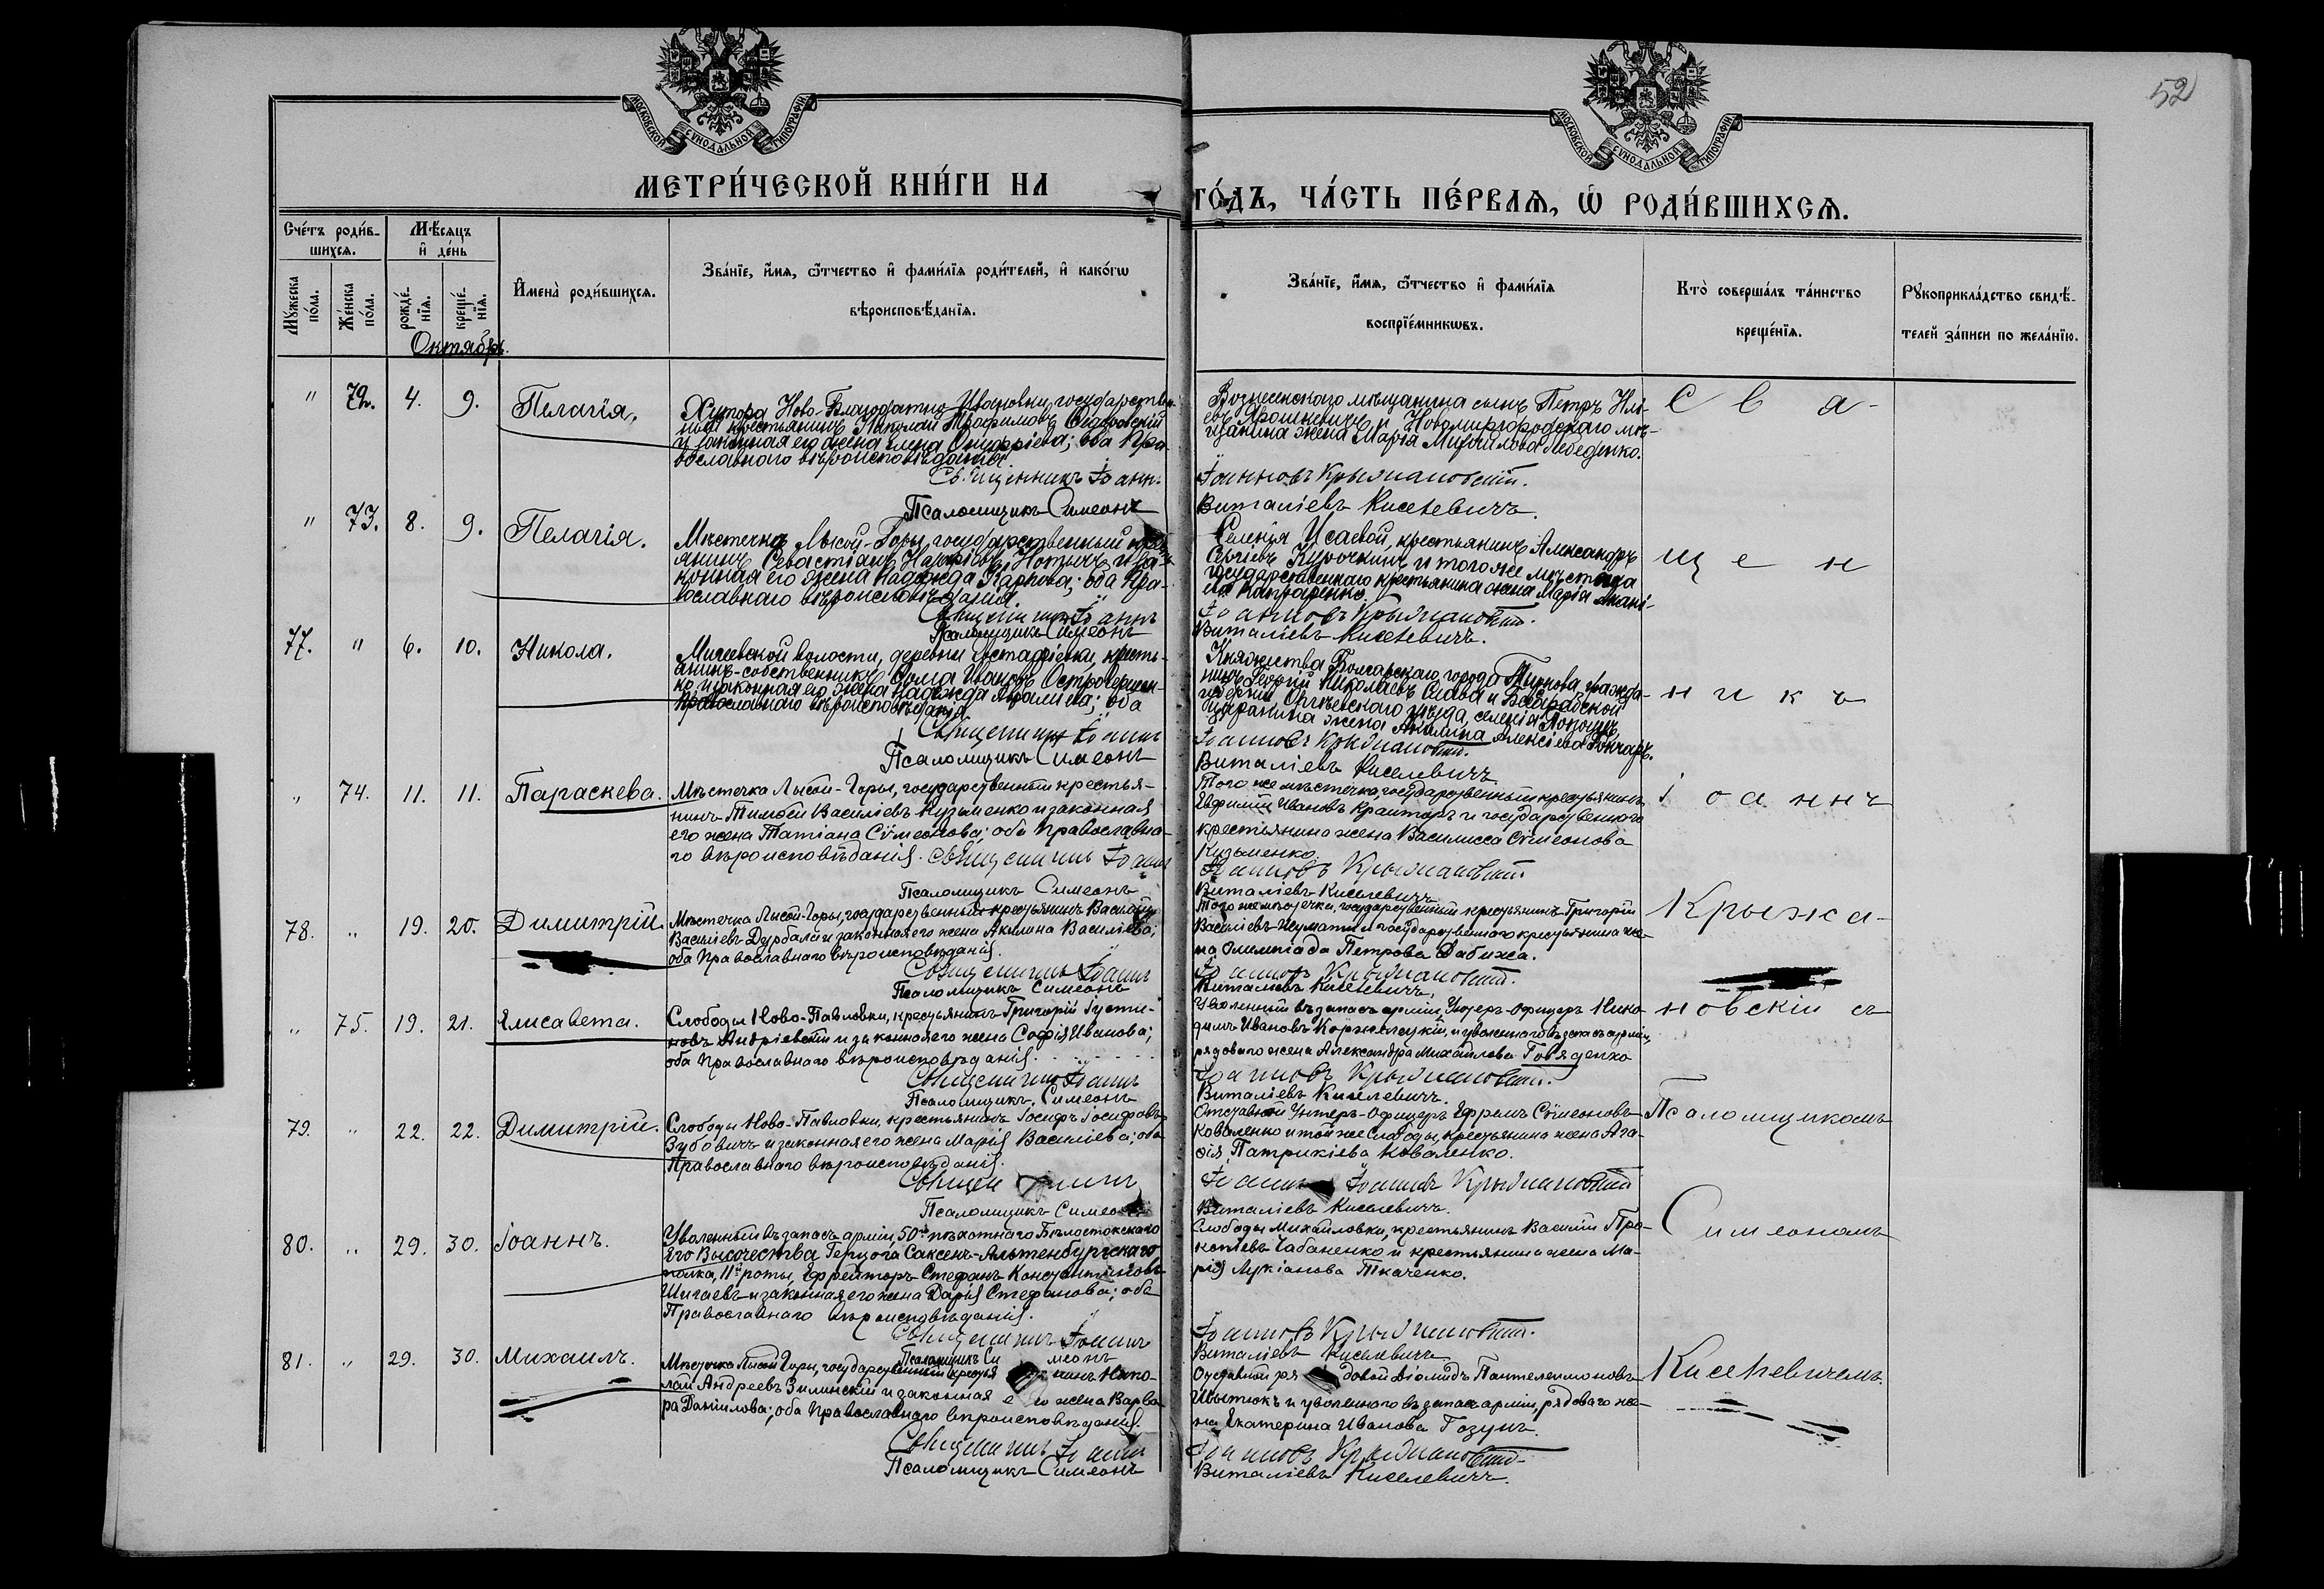 52
МОСКОВСКОЙ СѴНОДАЛЬНОЙ ТИПОГРАФІИ
МОСКОВСКОЙ СѴНОДАЛЬНОЙ ТИПОГРАФІИ
МЕТРИ́ЧЕСКОЙ КНИ́ГИ НА
ГО́ДЪ, ЧА́СТЬ ПЕ́РВАѦ, Ѡ҆ РОДИ́ВШИХСѦ.
Сче́тъ роди́в-
шихсѧ.
Мѣ́сѧцъ
и҆ де́нь
Мꙋ́жеска
по́ла.
Же́нска
по́ла.
рожде́-
нїѧ.
креще́-
нїѧ.
И҆мена̀ роди́вшихсѧ.
Зва́нїе, и҆́мѧ, ѻ҆́тчество и҆ фами́лїѧ роди́телей, и҆ како́гѡ
вѣроисповѣ́данїѧ.
Зва́нїе, и҆́мѧ, ѻ҆́тчество и҆ фами́лїѧ
воспрїе́мникѡвъ.
Кто̀ соверша́лъ та́инство
креще́нїѧ.
Рꙋкоприкла́дство свидѣ́-
телей за́писи по жела́нїю.
Октябрь.
" 72. 4. 9. Пелагія,
Хутора Ново-Благодатно Ивановки, государствен-
ный крестьянинъ Николай Трофимовъ
и законная его жена Елена Онуфріева; оба Пра-
вославнаго вѣроисповѣданія.
Священникъ Іоаннъ
Псаломщикъ Симеонъ
Вознесенскаго мѣщанина сынъ Петръ Илі-
евъ и Новомиргородскаго мѣ-
щанина жена Марія Михайлова Лебеденко.
Іоанновъ Крыжановскій.
Виталіевъ Киселевичъ.
Свя-
" 73. 8. 9. Пелагія.
Мѣстечка Лысой-Горы, государственный кресть-
янинъ Севастіанъ и за-
конная его жена Надежда Карпова; оба Пра-
вославнаго вѣроисповѣданія.
Священникъ Іоаннъ
Псаломщикъ Симеонъ
Селенія Исаевой, крестьянинъ Александръ
Сергіевъ Курочкинъ и того же мѣстечка
государственнаго крестьянина жена Марія
Іоанновъ Крыжановскій.
Виталіевъ Киселевичъ.
щен
77. " 6. 10. Никола.
Мигеевской волости, деревни Евстафіевки, кресть-
янинъ-собственникъ Ѳома Ивановъ Островершен-
ко и законная его жена Надежда; оба
Православнаго вѣроисповѣданія
Священникъ Іоаннъ
Псаломщикъ Симеонъ
Княжества Болгарскаго, города Тирнова гражда-
нинъ Георгій Николаевъ Слава и Бессарабской
губерніи Оргѣевскаго уѣзда, селенія
царанина жена Акилина Алексіева Гончаръ.
Іоанновъ Крыжановскій.
Виталіевъ Киселевичъ.
никъ
" 74. 11. 11. Параскева.
Мѣстечка Лысой-Горы, государственный крестья-
нинъ Тимоѳей Василіевъ Кузьменко и законная
его жена Татіана Сѵмеонова; оба Православна-
го вѣроисповѣданія. Священникъ Іоаннъ
Псаломщикъ Симеонъ
Того же мѣстечка, государственный крестьянинъ
Евфимій Ивановъ и государственнаго
крестьянина жена Василисса Сѵмеонова
Кузьменко.
Іоанновъ Крыжановскій.
Виталіевъ Киселевичъ.
Іоаннъ
78. " 19. 20. Димитрій.
Мѣстечка Лысой-Горы, государственный крестьянинъ Василій
Василіевъ Дурбала и законная его жена Акилина Василіева;
оба Православнаго вѣроисповѣданія.
Священникъ Іоаннъ
Псаломщикъ Симеонъ
Того же мѣстечка, государственный крестьянинъ Григорій
Василіевъ и государственнаго крестьянина же-
на Олимпіада Петрова Дабижа.
Іоанновъ Крыжановскій.
Виталіевъ Киселевичъ.
Крыжа-
" 75. 19. 21. Елисавета.
Слободы Ново-Павловки, крестьянинъ Григорій Густи-
новъ Андріевскій и законная его жена Софія Иванова;
оба Православнаго вѣроисповѣданія.
Священникъ Іоаннъ
Псаломщикъ Симеонъ
Уволенный въ запасъ арміи, Унтеръ-Офицеръ Нико-
димъ Ивановъ и уволеннаго въ запасъ арміи,
рядоваго жена Александра Михайлова Говяденко
Іоанновъ Крыжановскій.
Виталіевъ Киселевичъ.
новскій съ
79. " 22. 22. Димитрій.
Слободы Ново-Павловки, крестьянинъ Іосифъ Іосифовъ
Зубовичъ и законная его жена Марія Василіева; оба
Православнаго вѣроисповѣданія.
Священ Іоаннъ
Псаломщикъ Симеонъ
Отставной Унтеръ-Офицеръ Ефремъ Сѵмеоновъ
Коваленко и той же Слободы, крестьянина жена Ага-
ѳія Патрикіева Коваленко.
Іоанновъ Крыжановскій
Виталіевъ Киселевичъ.
Псаломщикомъ
80. " 29. 30. Іоаннъ.
Уволенный въ запасъ арміи, 50го пѣхотнаго Бѣлостокскаго
Его Высочества Герцога Саксенъ-Альтенбургскаго
полка, 11й роты, Ефрейторъ Стефанъ Константиновъ
Шигаевъ и законная его жена Дарія Стефанова; оба
Православнаго вѣроисповѣданія.
Священникъ Іоаннъ
Псаломщикъ Симеонъ
Слободы Михайловки, крестьянинъ Василій Про-
копіевъ Чабаненко и крестьянина жена Ма-
рія Лукіанова Ткаченко.
Іоанновъ Крыжановскій.
Виталіевъ Киселевичъ
Симеономъ
81. " 29. 30. Михаилъ.
Мѣстечка Лысой Горы, государственный крестьянинъ Нико-
лай Андреевъ Зилинскій и законная его жена Варва-
ра Даніилова; оба Православнаго вѣроисповѣданія.
Священникъ Іоаннъ
Псаломщикъ Симеонъ
Отставной рядовой Діомидъ Пантелеимоновъ
Швытюкъ и уволеннаго въ запасъ арміи, рядоваго же-
на Екатерина Иванова Гозунъ.
Іоанновъ Крыжановскій
Виталіевъ Киселевичъ.
Киселевичемъ.